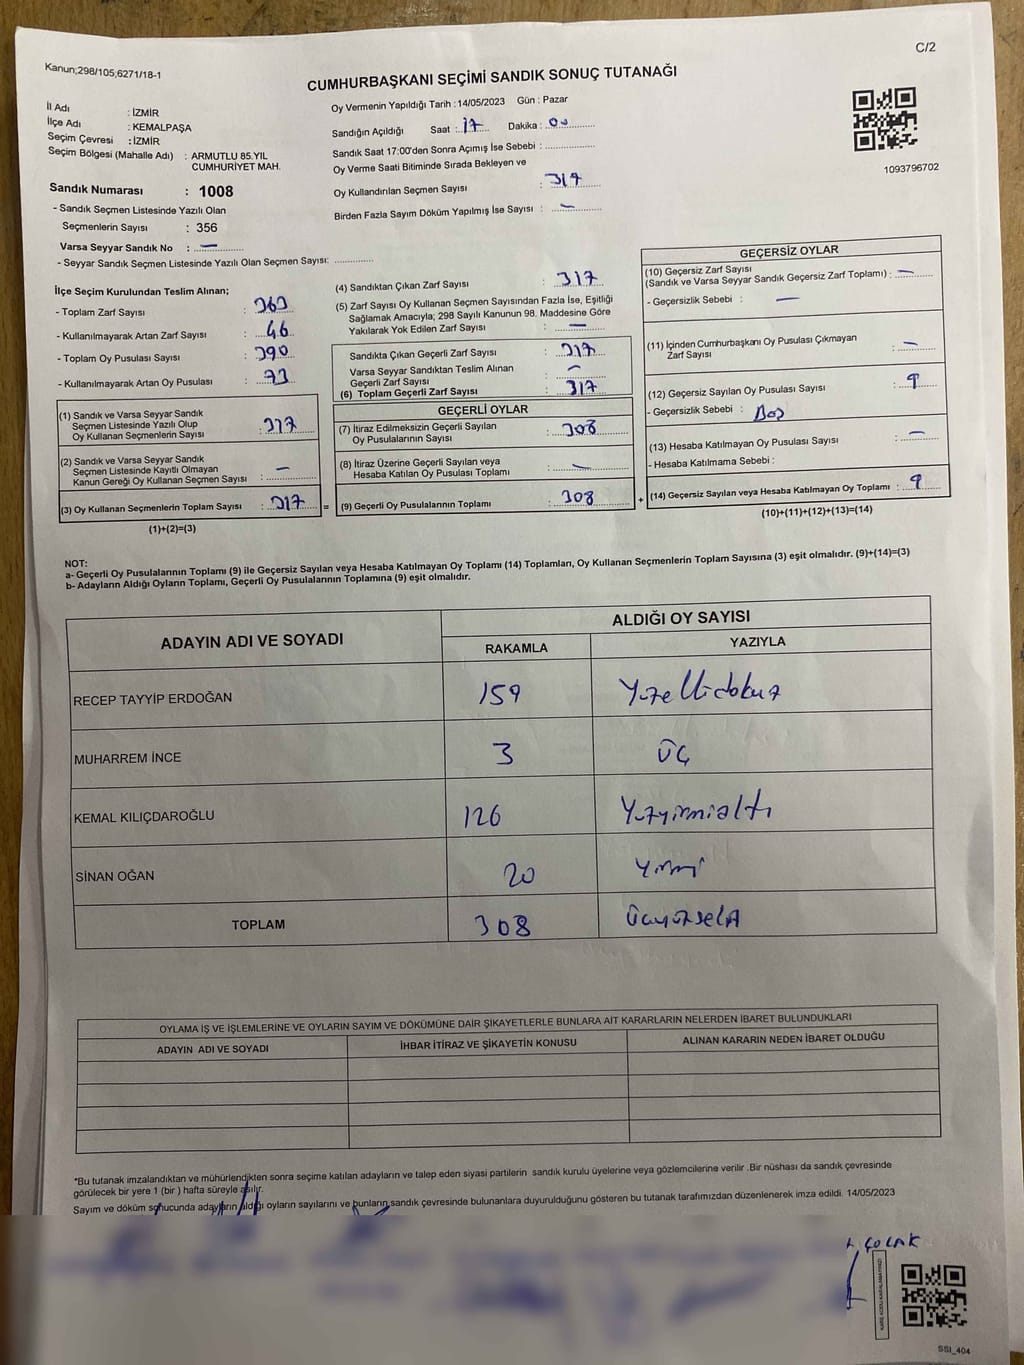 Kanun;298/105,6271/18-1
C/2
CUMHURBAŞKANI SEÇİMİ SANDIK SONUÇ TUTANAĞI
İl Adı : İZMİR
İlçe Adı : KEMALPAŞA
Seçim Çevresi : İZMİR
Seçim Bölgesi (Mahalle Adı) : ARMUTLU 85.YIL
CUMHURİYET MAH.
Sandık Numarası : 1008
- Sandık Seçmen Listesinde Yazılı Olan
Seçmenlerin Sayısı : 356
Varsa Seyyar Sandık No : —
- Seyyar Sandık Seçmen Listesinde Yazılı Olan Seçmen Sayısı:
Oy Vermenin Yapıldığı Tarih : 14/05/2023 Gün : Pazar
Sandığın Açıldığı Saat : 17 Dakika : 00
Sandık Saat 17:00'den Sonra Açımış İse Sebebi :
Oy Verme Saati Bitiminde Sırada Bekleyen ve
Oy Kullandırılan Seçmen Sayısı : 317
Birden Fazla Sayım Döküm Yapılmış İse Sayısı : —
1093796702
İlçe Seçim Kurulundan Teslim Alınan;
- Toplam Zarf Sayısı : 363
- Kullanılmayarak Artan Zarf Sayısı : 46
- Toplam Oy Pusulası Sayısı : 390
- Kullanılmayarak Artan Oy Pusulası : 73
(1) Sandık ve Varsa Seyyar Sandık
Seçmen Listesinde Yazılı Olup
Oy Kullanan Seçmenlerin Sayısı : 317
(2) Sandık ve Varsa Seyyar Sandık
Seçmen Listesinde Kayıtlı Olmayan
Kanun Gereği Oy Kullanan Seçmen Sayısı : —
(3) Oy Kullanan Seçmenlerin Toplam Sayısı : 317 =
(1)+(2)=(3)
(4) Sandıktan Çıkan Zarf Sayısı : 317
(5) Zarf Sayısı Oy Kullanan Seçmen Sayısından Fazla İse, Eşitliği
Sağlamak Amacıyla; 298 Sayılı Kanunun 98. Maddesine Göre
Yakılarak Yok Edilen Zarf Sayısı : —
Sandıkta Çıkan Geçerli Zarf Sayısı : 317
Varsa Seyyar Sandıktan Teslim Alınan
Geçerli Zarf Sayısı : —
(6) Toplam Geçerli Zarf Sayısı : 317
GEÇERLİ OYLAR
(7) İtiraz Edilmeksizin Geçerli Sayılan
Oy Pusulalarının Sayısı : 308
(8) İtiraz Üzerine Geçerli Sayılan veya
Hesaba Katılan Oy Pusulası Toplamı : —
(9) Geçerli Oy Pusulalarının Toplamı : 308 +
GEÇERSİZ OYLAR
(10) Geçersiz Zarf Sayısı
(Sandık ve Varsa Seyyar Sandık Geçersiz Zarf Toplamı) : —
- Geçersizlik Sebebi : —
(11) İçinden Cumhurbaşkanı Oy Pusulası Çıkmayan
Zarf Sayısı : —
(12) Geçersiz Sayılan Oy Pusulası Sayısı : 9
- Geçersizlik Sebebi : Boş
(13) Hesaba Katılmayan Oy Pusulası Sayısı : —
- Hesaba Katılmama Sebebi :
(14) Geçersiz Sayılan veya Hesaba Katılmayan Oy Toplamı : 9
(10)+(11)+(12)+(13)=(14)
NOT:
a- Geçerli Oy Pusulalarının Toplamı (9) ile Geçersiz Sayılan veya Hesaba Katılmayan Oy Toplamı (14) Toplamları, Oy Kullanan Seçmenlerin Toplam Sayısına (3) eşit olmalıdır. (9)+(14)=(3)
b- Adayların Aldığı Oyların Toplamı, Geçerli Oy Pusulalarının Toplamına (9) eşit olmalıdır.
ADAYIN ADI VE SOYADI ALDIĞI OY SAYISI
RAKAMLA YAZIYLA
RECEP TAYYİP ERDOĞAN 159 Yüzellidokuz
MUHARREM İNCE 3 ÜÇ
KEMAL KILIÇDAROĞLU 126 Yüzyirmialtı
SİNAN OĞAN 20 Yirmi
TOPLAM 308 Üçyüzsekiz
OYLAMA İŞ VE İŞLEMLERİNE VE OYLARIN SAYIM VE DÖKÜMÜNE DAİR ŞİKAYETLERLE BUNLARA AİT KARARLARIN NELERDEN İBARET BULUNDUKLARI
ADAYIN ADI VE SOYADI İHBAR İTİRAZ VE ŞİKAYETİN KONUSU ALINAN KARARIN NEDEN İBARET OLDUĞU
*Bu tutanak imzalandıktan ve mühürlendikten sonra seçime katılan adayların ve talep eden siyasi partilerin sandık kurulu üyelerine veya gözlemcilerine verilir .Bir nüshası da sandık çevresinde
görülecek bir yere 1 (bir ) hafta süreyle asılır.
Sayım ve döküm sonucunda adayların aldığı oyların sayılarını ve bunların sandık çevresinde bulunanlara duyurulduğunu gösteren bu tutanak tarafımızdan düzenlenerek imza edildi. 14/05/2023
ÇOLAK
SSI_404